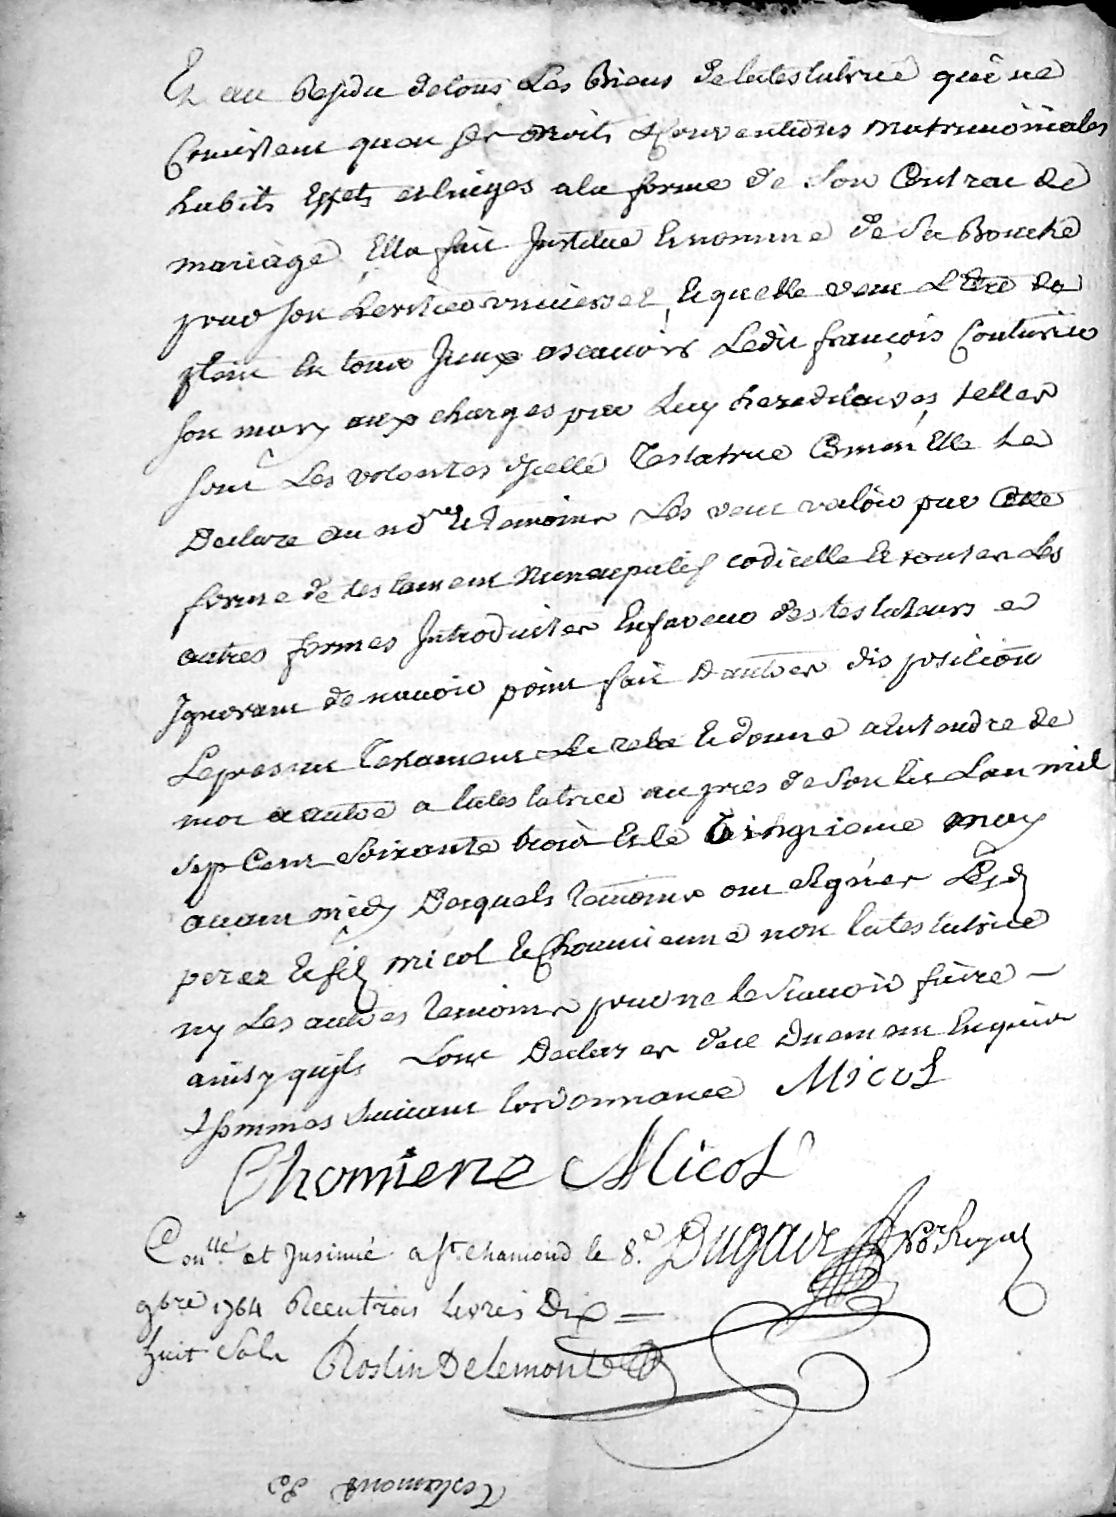 Et au Residu detous Les Biens delatestatrice quine
Consistent quen ses droits & Conventions matrimoniales
habits Effets etlinges ala forme de son Contrac de
mariage Ella fait Institue Etnomme de Sa Bouche
pour son heritier universel, Equelle veut L'Etre de
plein En tout Iceux ascavoir Ledit françois Couturier
son mary aux charges par Luy hereditaires, telles
sont Les volontes dicelle Testatrice Comm'Elle La
Declare au nore & temoins Les veut valoir par Cette
forme de testament Nuncupatif codicille & toutes Les
autres formes Introduites Enfaveur des testateurs et
Ignorant de navoir point fait Dautres dis position
Lepresent Testament Leu relu & donné a Entendre de
mot a autre a latestatrice au pres de Son lit Lan mil
sept Cent soixante trois & le vingtieme may
avant midy Desquels temoins ont signes Lesd
peres & fils Micol & Choumienne non latestatrice
ny Les autres temoins pour ne le Scavoir faire -
ainsy quils Lont Declares dece Duement Enquis
& sommes suivant lordonnance Micol
Chomiene Micol
Conllé et Insinué a St. chamond le 8.e Dugave Nore Royal
9bre 1764 Receu trois Livres Dix =
huit Sols Roslin Delemont
Testament de